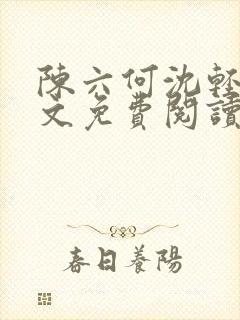 陳六何沈輕
文免費閱讀
春日養陽